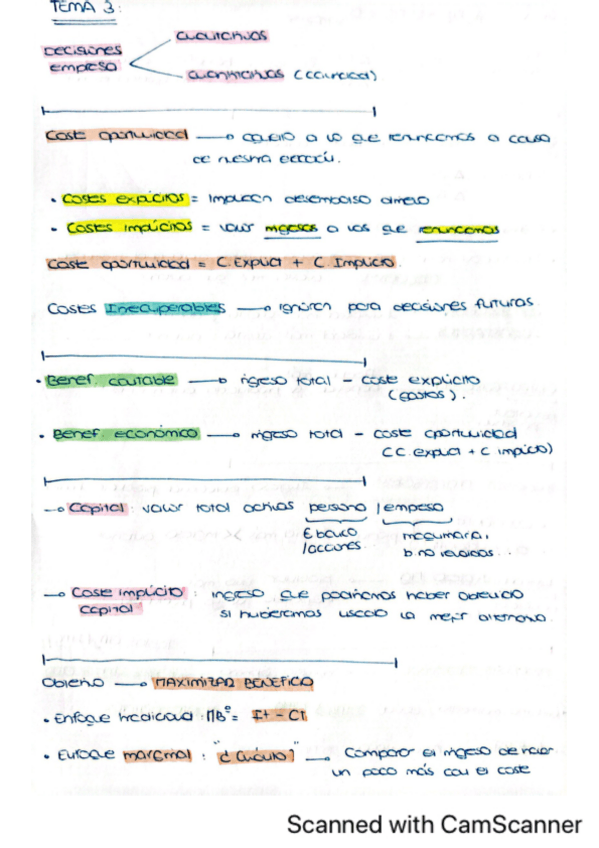 TEMA 3:
Decisiones
empresa
cualitativas
cuantitativas (cantidad)
Coste oportunidad → aquello a lo que renunciamos a causa
de nuestra elección.
• Costes explícitos = Implican desembolso dinero
• Costes implícitos = valor ingresos a los que renunciamos
Coste oportunidad = C. Explíct + C. Implícito.
Costes Irrecuperables → ignoran para decisiones futuras.
• Benef. contable → ingreso total - coste explícito
(gastos).
• Benef. económico → ingreso total - coste oportunidad
(C. explíct + C implícito)
→ Capital: valor total activos persona / empresa
€ banco
/acciones
maquinaria,
b. no vendidos..
→ Coste implícito: ingreso que podríamos haber obtenido
capital
si hubieramos usado la mejor alternativa.
Objetivo → MAXIMIZAR BENEFICIO
• Enfoque tradicional: MBº = It - Ct
• Enfoque marginal: "¿Cuánto?" → Comparar el ingreso de hacer
un poco más con el coste
Scanned with CamScanner